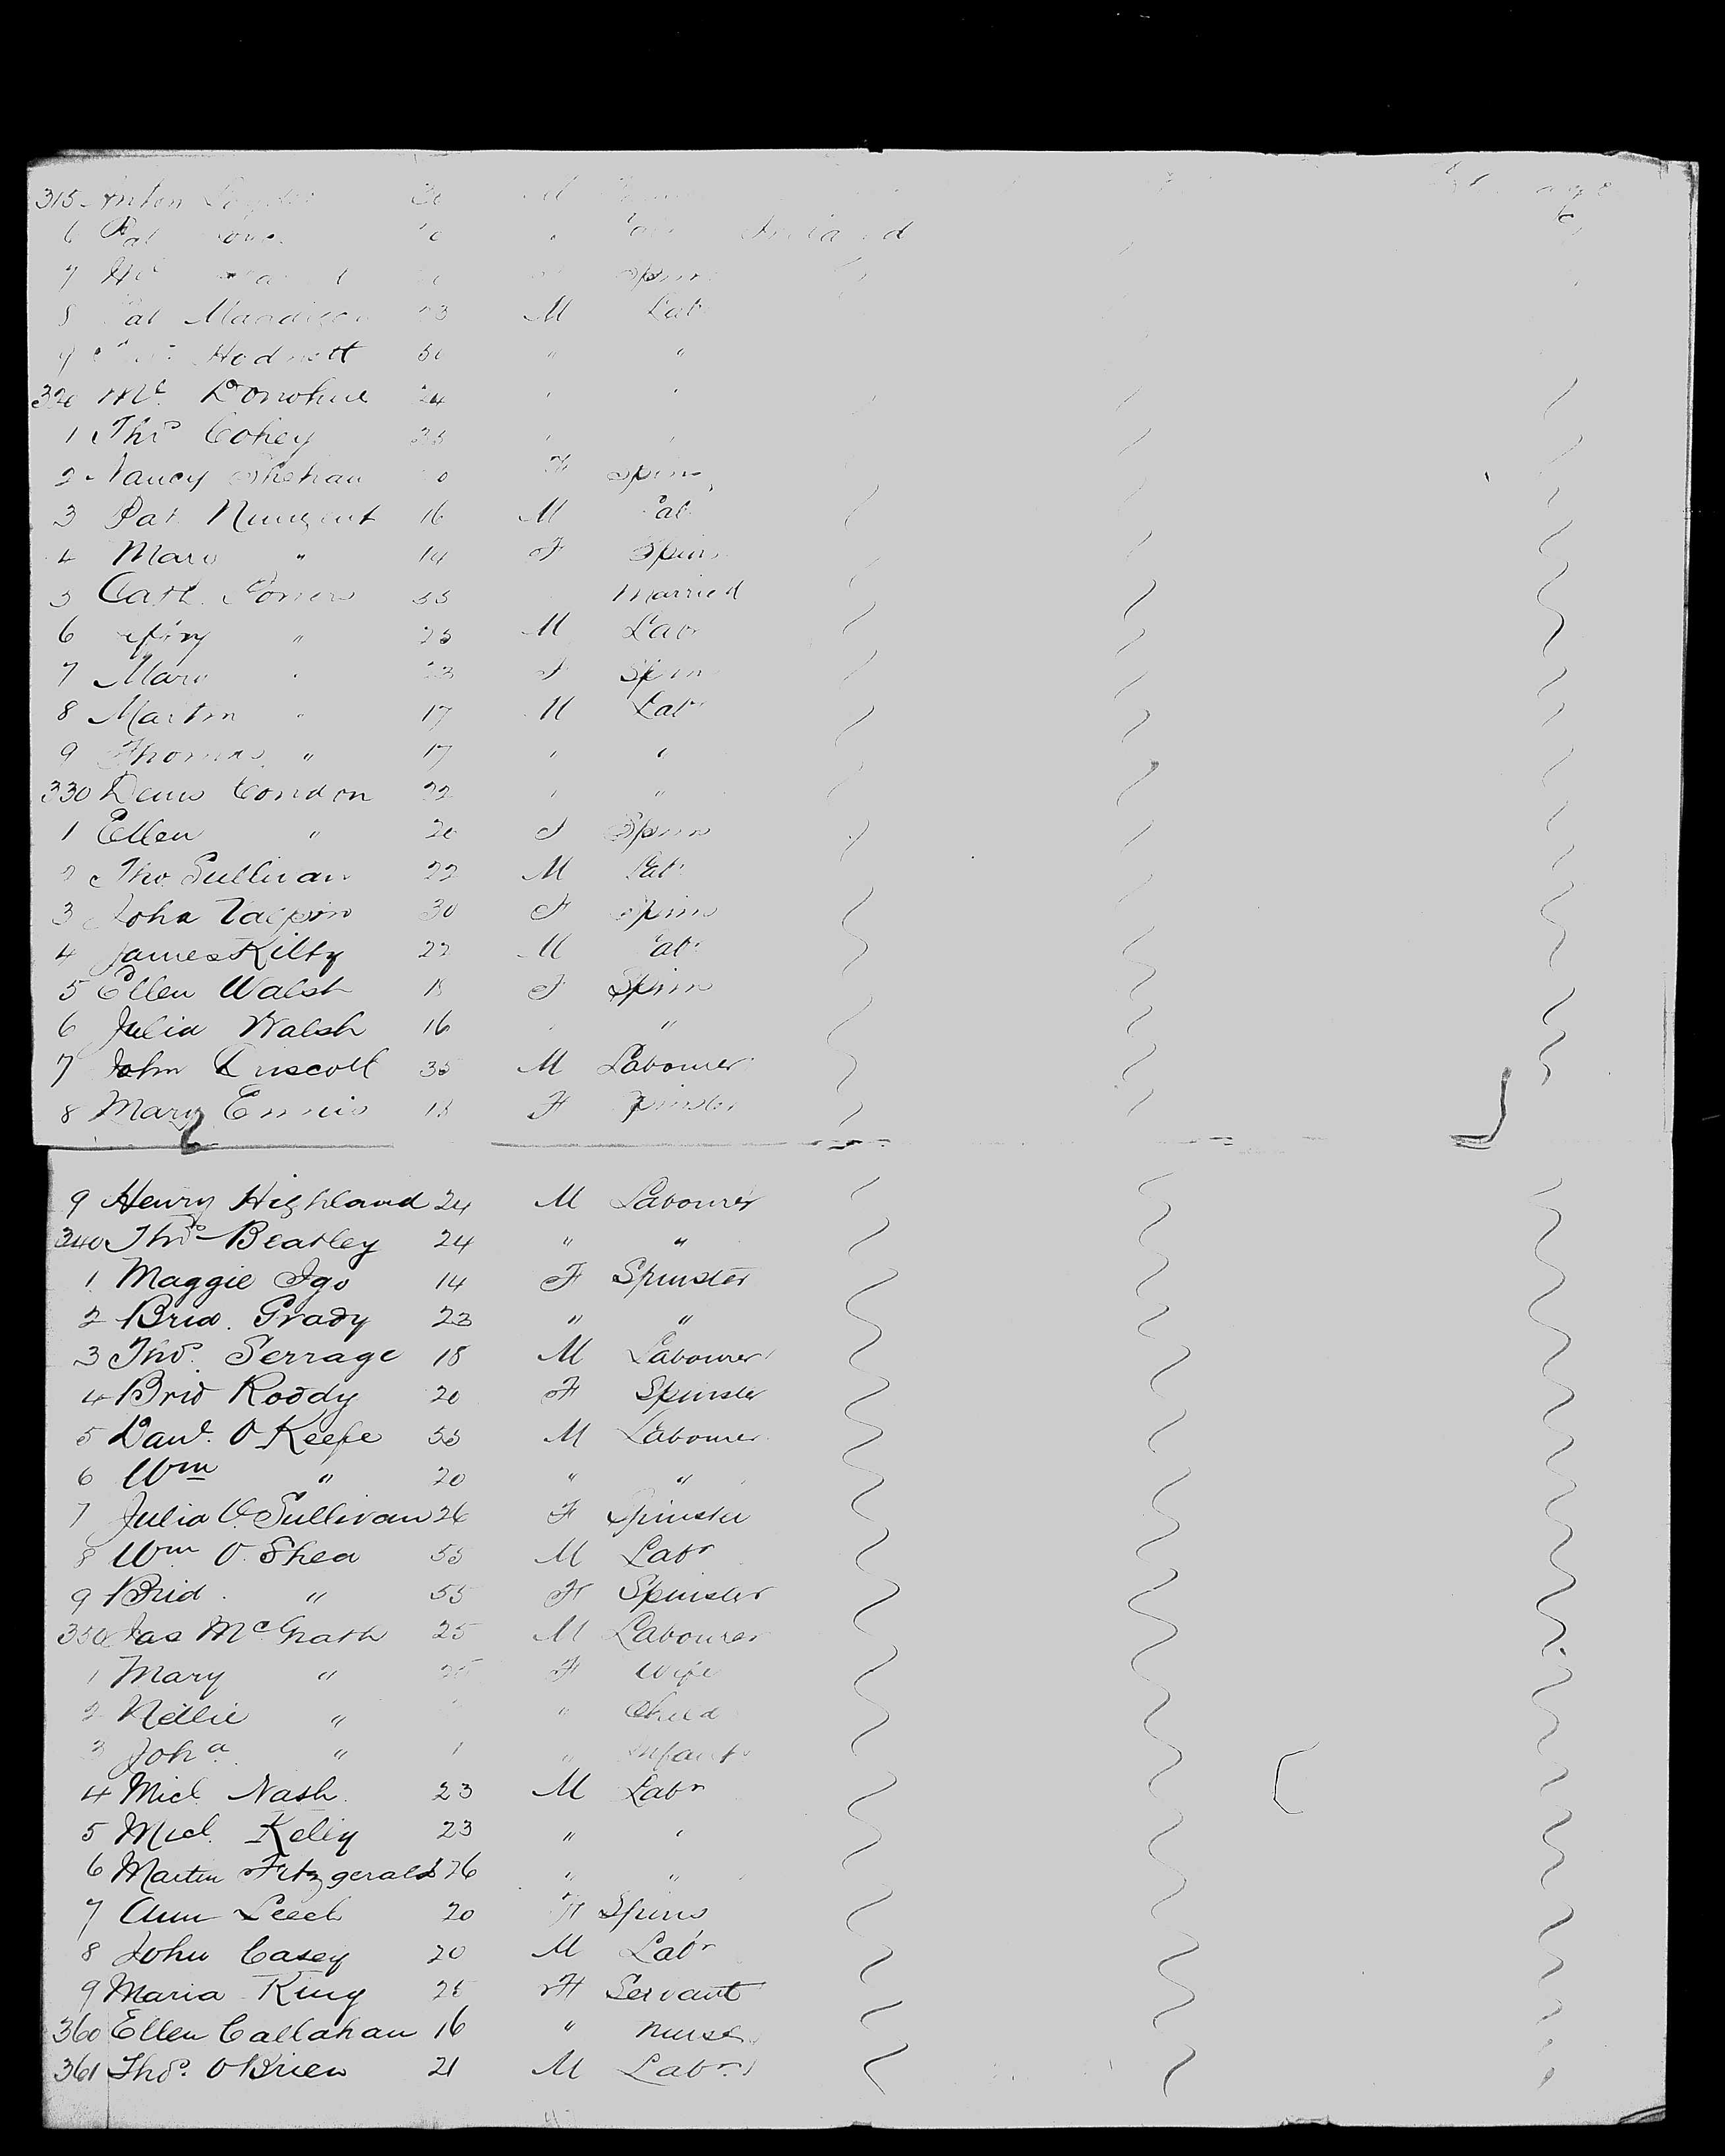 315 Anton 30 M
6 Pat " Ireland
7 Spin
8 Pat M Lab
9 Hodnett 50 " "
320 Mc Donohue 24 " "
1 Thos Cohey " "
2 Nancy Shehan F Spins
3 Pat Nungent 16 M Lab
4 Mary " 14 F Spins
5 Cath. Powers 55 Married
6 " 25 M Labr
7 Mary " 23 F Spins
8 Martin " 17 M Labr
9 Thomas " 17 " "
330 Denis Condon 22 " "
1 Ellen " 20 F Spins
2 Tho Sullivan 22 M Labr
3 Joha 30 F Spins
4 James Kilty 22 M Labr
5 Ellen Walsh 18 F Spins
6 Julia Walsh 16 " "
7 John Driscoll 35 M Labourer
8 Mary Ennis 18 F Spinster
9 Henry Highland 24 M Labourer
340 Thos Beatley 24 " "
1 Maggie Igo 14 F Spinster
2 Brid. Grady 23 " "
3 Thos. Serrage 18 M Labourer
4 Brid Roddy 20 F Spinster
5 Danl. O Keefe 55 M Labourer
6 Wm " 20 " "
7 Julia O Sullivan 26 F Spinster
8 Wm O. Shea 55 M Labr
9 Brid. " 55 F Spinster
350 Jas McGrath 25 M Labourer
1 Mary " 25 F Wife
2 Nellie " " Child
3 Joha " 1 " Infant
4 Micl Nash 23 M Labr
5 Micl. Kelly 23 " "
6 Martin Fitzgerald 26 " "
7 Ann Leech 20 F Spins
8 John Casey 20 M Labr
9 Maria King 25 F Servant
360 Ellen Callahan 16 " Nurse
361 Thos. O Brien 21 M Labr